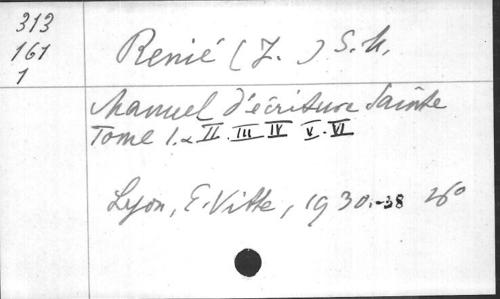 313
161
1
Renié (J.) S.M.
Manuel d'écriture Sainte
Tome I. & II. III IV V. VI
Lyon, E. Vitte, 1930.-38 16°